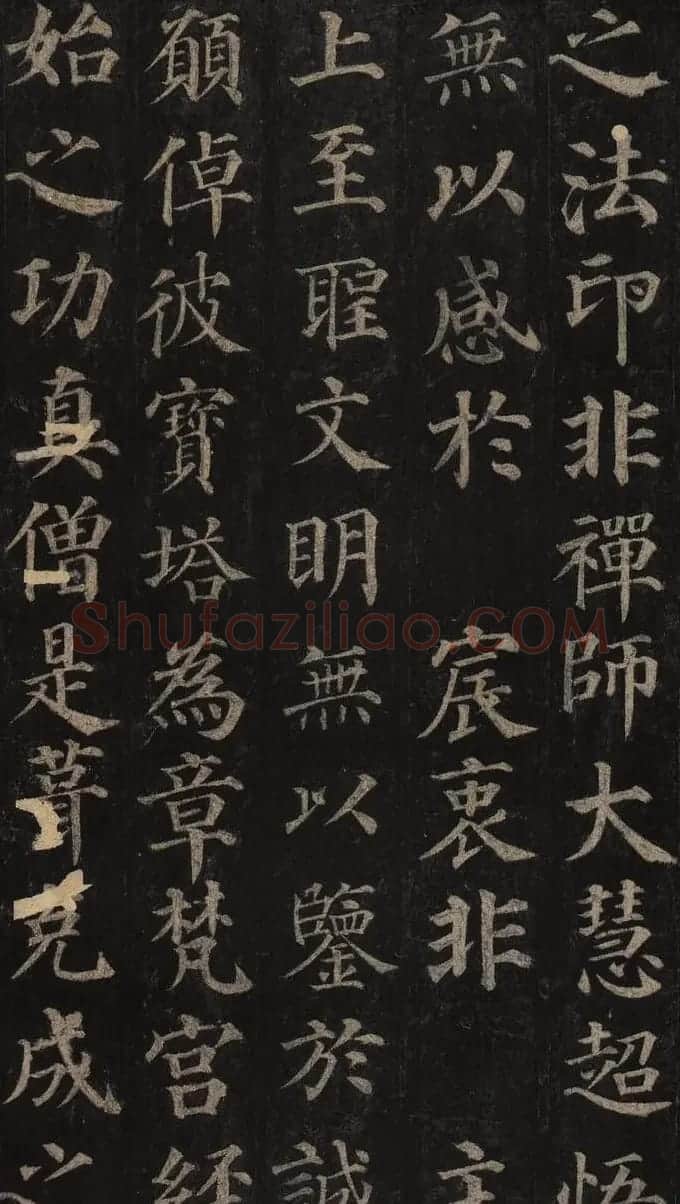 之法印非禪師大慧超悟
無以感於 宸衷非 主
上至聖文明無以鑒於誠
願倬彼寶塔為章梵宮經
始之功真僧是葺克成之
Shufaziliao.COM